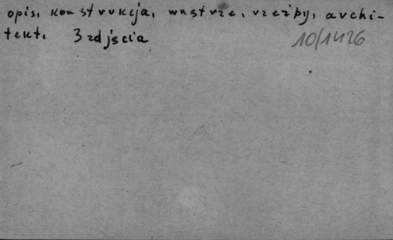 opis, konstrukcja, wnętrze, rzeźby, archi-
tekt. 3 zdjęcia
10/1426